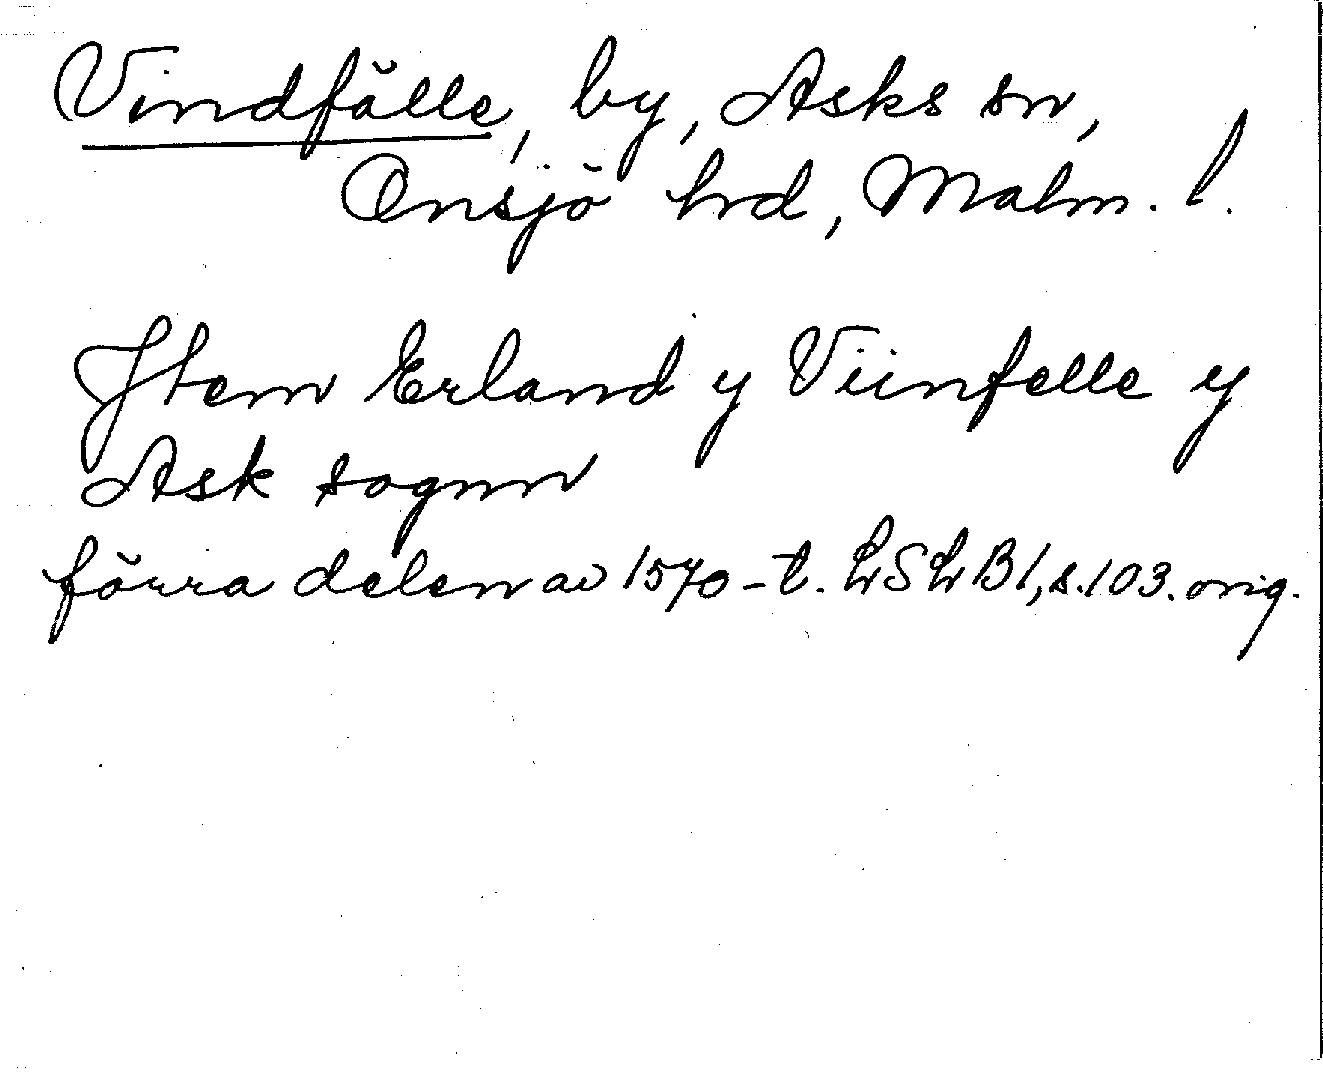 Vindfälle, by, Asks sn,
Onsjö hrd, Malm. l.
Item Erland y Viinfelle y
Ask sognn
förra delen av 1570-t. LSLB1, s.103. orig.